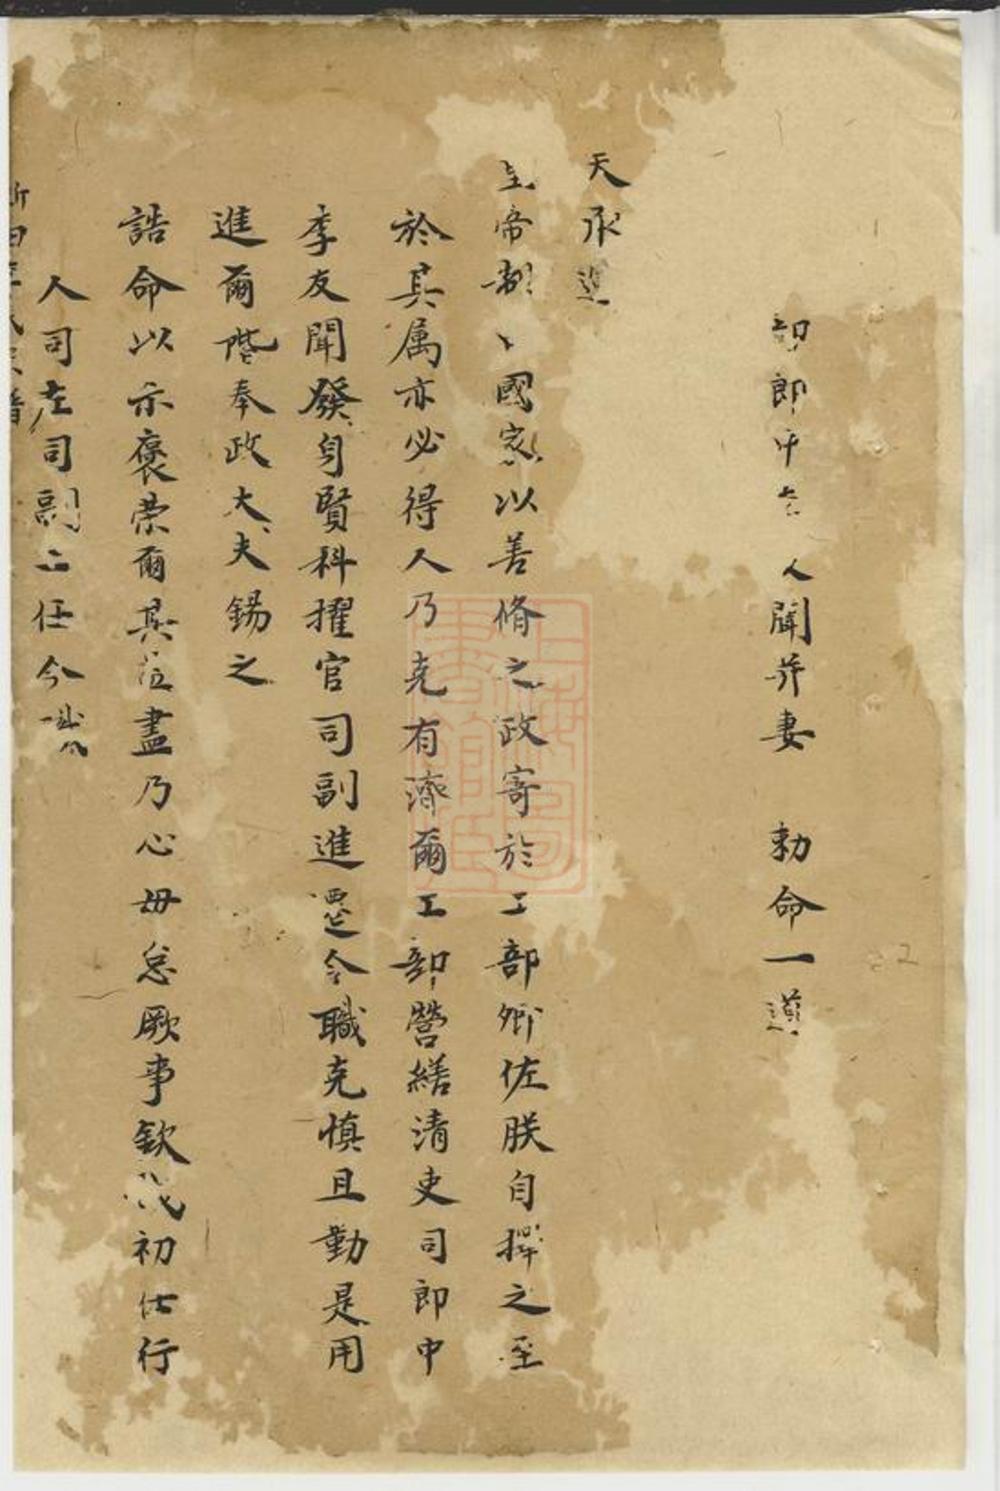 部郎中 人聞并妻 勅命一道
天承運
皇帝制 國家以善脩之政寄於工部卿佐朕自擇之至
於其属亦必得人乃克有濟爾工部營繕清吏司郎中
李友聞發身賢科擢官司副進遷今職克慎且勤是用
進爾階奉政大夫錫之
誥命以示褒榮爾其 盡乃心毋怠厥事欽哉初仕行
人司左司副二任今職